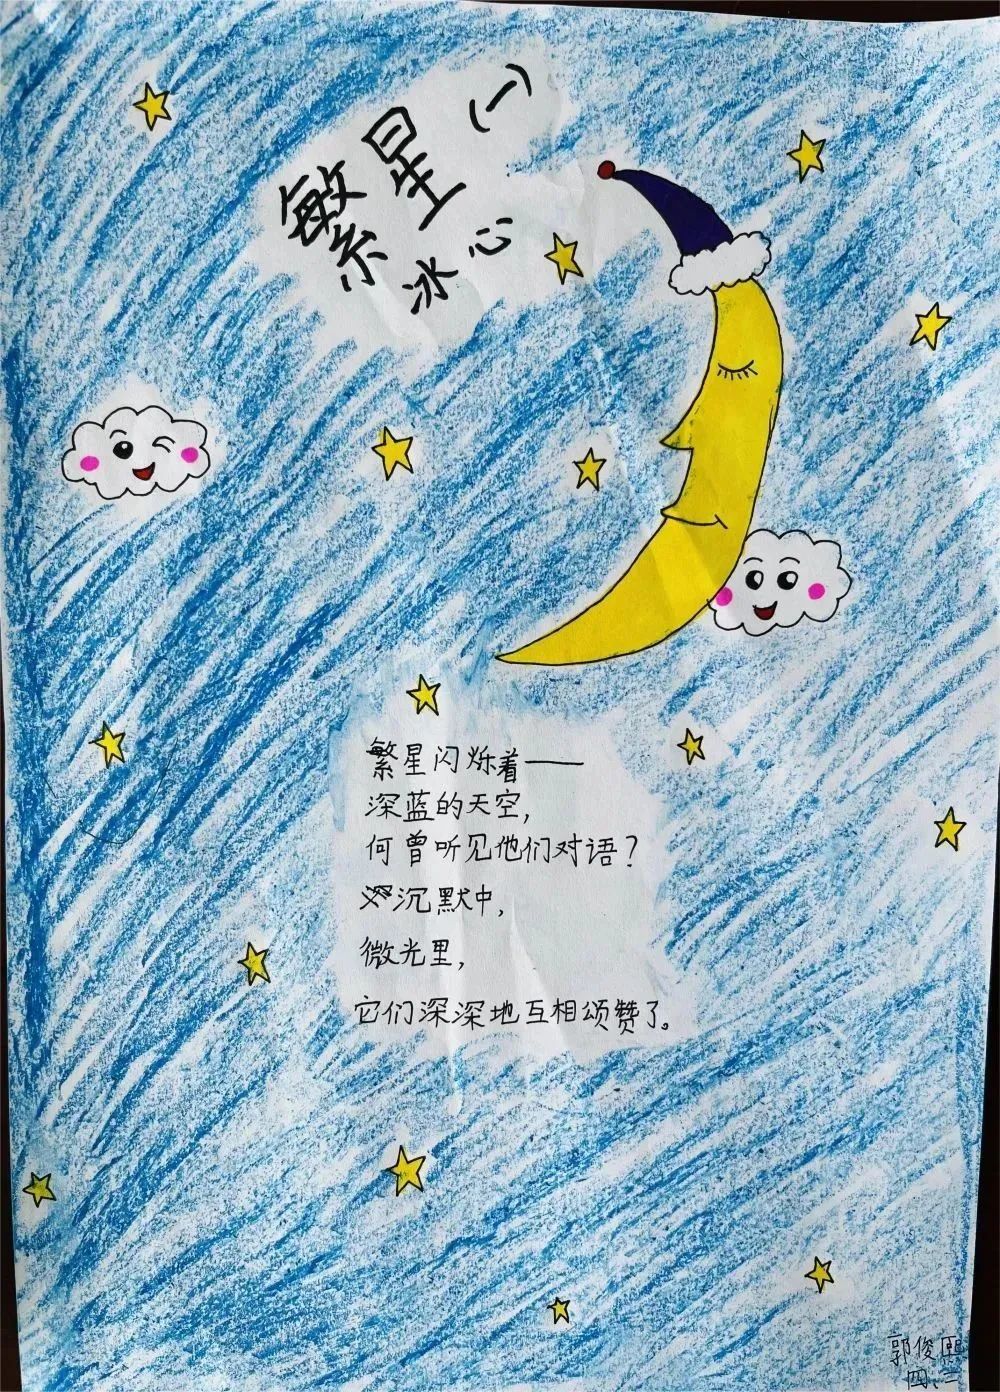 繁星(一)
冰心
繁星闪烁着——
深蓝的天空,
何曾听见他们对语?
沉默中,
微光里,
它们深深地互相颂赞了。
郭俊熙
四三